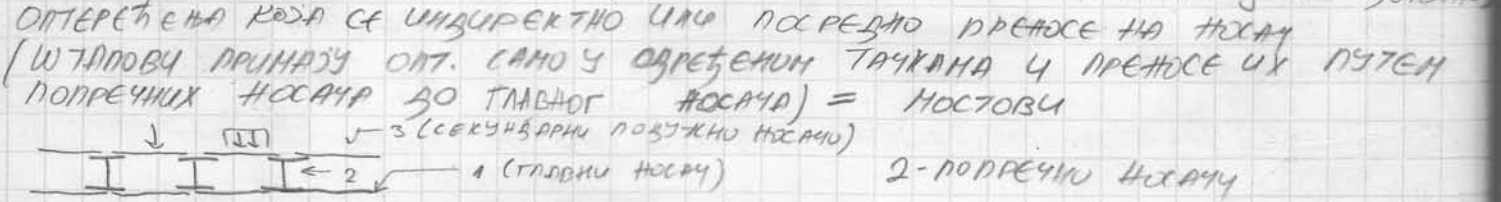 ОПТЕРЕЋЕЊА КОЈА СЕ ИНДИРЕКТНО ИЛИ ПОСРЕДНО ПРЕНОСЕ НА НОСАЧ
(ШТАПОВИ ПРИМАЈУ ОПТ. САМО У ОДРЕЂЕНИМ ТАЧКАМА И ПРЕНОСЕ ИХ ПУТЕМ
ПОПРЕЧНИХ НОСАЧА ДО ГЛАВНОГ НОСАЧА) = МОСТОВИ
3 (СЕКУНДАРНИ ПОДУЖНИ НОСАЧИ)
2
1 (ГЛАВНИ НОСАЧ)
2-ПОПРЕЧНИ НОСАЧИ